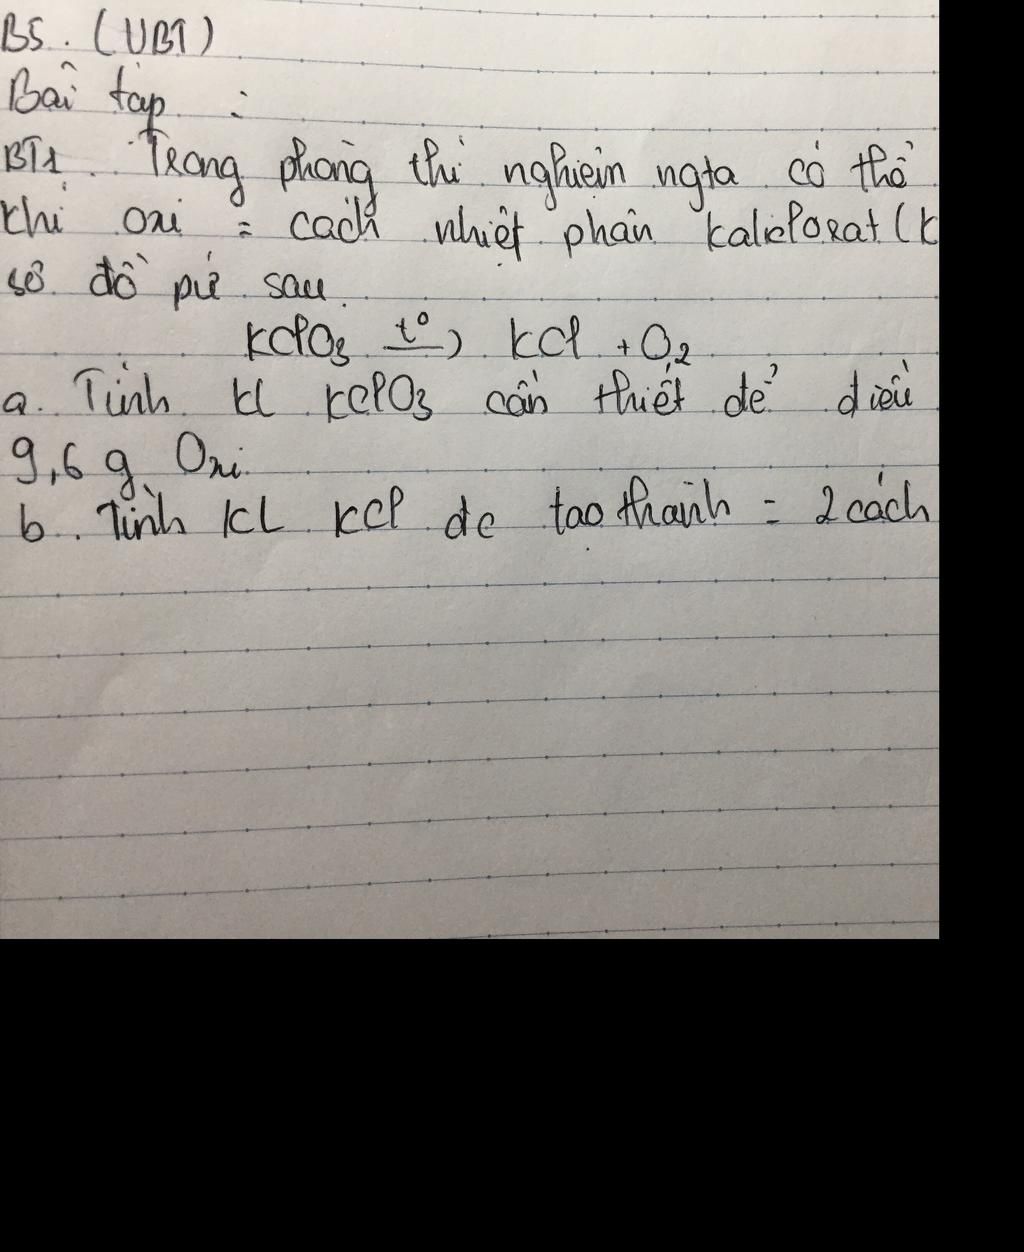 B5. (VBT)
Bài tập :
BT1. Trong phòng thí nghiệm ngta có thể
khí oxi = cách nhiệt phân kaliclorat (K
sơ đồ pư sau
KClO3 t°→ KCl + O2
a. Tính kl KClO3 cần thiết để điều
9,6 g Oxi
b. Tính KL KCl đc tạo thành = 2 cách